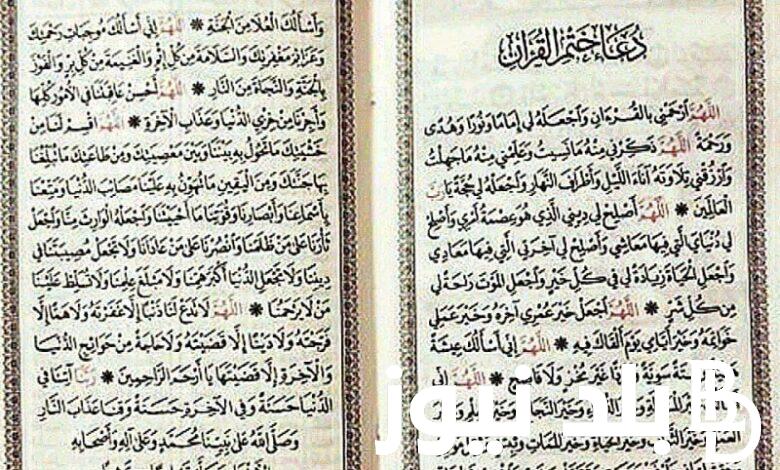 دُعَاءُ خَتْمِ الْقُرْآنِ
اللَّهُمَّ ارْحَمْنِي بِالْقُرْءَانِ وَاجْعَلْهُ لِي إِمَامًا وَنُورًا وَهُدًى
وَرَحْمَةً اللَّهُمَّ ذَكِّرْنِي مِنْهُ مَا نَسِيتُ وَعَلِّمْنِي مِنْهُ مَا جَهِلْتُ
وَارْزُقْنِي تِلَاوَتَهُ آنَاءَ اللَّيْلِ وَأَطْرَافَ النَّهَارِ وَاجْعَلْهُ لِي حُجَّةً يَا رَبَّ
الْعَالَمِينَ * اللَّهُمَّ أَصْلِحْ لِي دِينِي الَّذِي هُوَ عِصْمَةُ أَمْرِي وَأَصْلِحْ
لِي دُنْيَايَ الَّتِي فِيهَا مَعَاشِي وَأَصْلِحْ لِي آخِرَتِي الَّتِي فِيهَا مَعَادِي
وَاجْعَلِ الْحَيَاةَ زِيَادَةً لِي فِي كُلِّ خَيْرٍ وَاجْعَلِ الْمَوْتَ رَاحَةً لِي
مِنْ كُلِّ شَرٍّ * اللَّهُمَّ اجْعَلْ خَيْرَ عُمْرِي آخِرَهُ وَخَيْرَ عَمَلِي
خَوَاتِمَهُ وَخَيْرَ أَيَّامِي يَوْمَ أَلْقَاكَ فِيهِ * اللَّهُمَّ إِنِّي أَسْأَلُكَ عِيشَةً
سَوِيَّةً وَمَرَدًّا غَيْرَ مُخْزٍ وَلَا فَاضِحٍ * اللَّهُمَّ إِنِّي
وَخَيْرَ النَّجَاحِ وَخَيْرَ الْعِلْمِ وَخَيْرَ
الْعَمَلِ وَخَيْرَ الثَّوَابِ وَخَيْرَ الْحَيَاةِ وَخَيْرَ الْمَمَاتِ وَثَبِّتْنِي
وَأَسْأَلُكَ الْعُلَا مِنَ الْجَنَّةِ * اللَّهُمَّ إِنِّي أَسْأَلُكَ مُوجِبَاتِ رَحْمَتِكَ
وَعَزَائِمَ مَغْفِرَتِكَ وَالسَّلَامَةَ مِنْ كُلِّ إِثْمٍ وَالْغَنِيمَةَ مِنْ كُلِّ بِرٍّ وَالْفَوْزَ
بِالْجَنَّةِ وَالنَّجَاةَ مِنَ النَّارِ * اللَّهُمَّ أَحْسِنْ عَاقِبَتَنَا فِي الْأُمُورِ كُلِّهَا
وَأَجِرْنَا مِنْ خِزْيِ الدُّنْيَا وَعَذَابِ الْآخِرَةِ * اللَّهُمَّ اقْسِمْ لَنَا مِنْ
خَشْيَتِكَ مَا تَحُولُ بِهِ بَيْنَنَا وَبَيْنَ مَعْصِيَتِكَ وَمِنْ طَاعَتِكَ مَا تُبَلِّغُنَا
بِهَا جَنَّتَكَ وَمِنَ الْيَقِينِ مَا تُهَوِّنُ بِهِ عَلَيْنَا مَصَائِبَ الدُّنْيَا وَمَتِّعْنَا
بِأَسْمَاعِنَا وَأَبْصَارِنَا وَقُوَّتِنَا مَا أَحْيَيْتَنَا وَاجْعَلْهُ الْوَارِثَ مِنَّا وَاجْعَلْ
ثَأْرَنَا عَلَى مَنْ ظَلَمَنَا وَانْصُرْنَا عَلَى مَنْ عَادَانَا وَلَا تَجْعَلْ مُصِيبَتَنَا فِي
دِينِنَا وَلَا تَجْعَلِ الدُّنْيَا أَكْبَرَ هَمِّنَا وَلَا مَبْلَغَ عِلْمِنَا وَلَا تُسَلِّطْ عَلَيْنَا
مَنْ لَا يَرْحَمُنَا * اللَّهُمَّ لَا تَدَعْ لَنَا ذَنْبًا إِلَّا غَفَرْتَهُ وَلَا هَمًّا إِلَّا
فَرَّجْتَهُ وَلَا دَيْنًا إِلَّا قَضَيْتَهُ وَلَا حَاجَةً مِنْ حَوَائِجِ الدُّنْيَا
وَالْآخِرَةِ إِلَّا قَضَيْتَهَا يَا أَرْحَمَ الرَّاحِمِينَ * رَبَّنَا آتِنَا فِي
الدُّنْيَا حَسَنَةً وَفِي الْآخِرَةِ حَسَنَةً وَقِنَا عَذَابَ النَّارِ
وَصَلَّى اللَّهُ عَلَى نَبِيِّنَا مُحَمَّدٍ وَعَلَى آلِهِ وَأَصْحَابِهِ
بلد نيوز